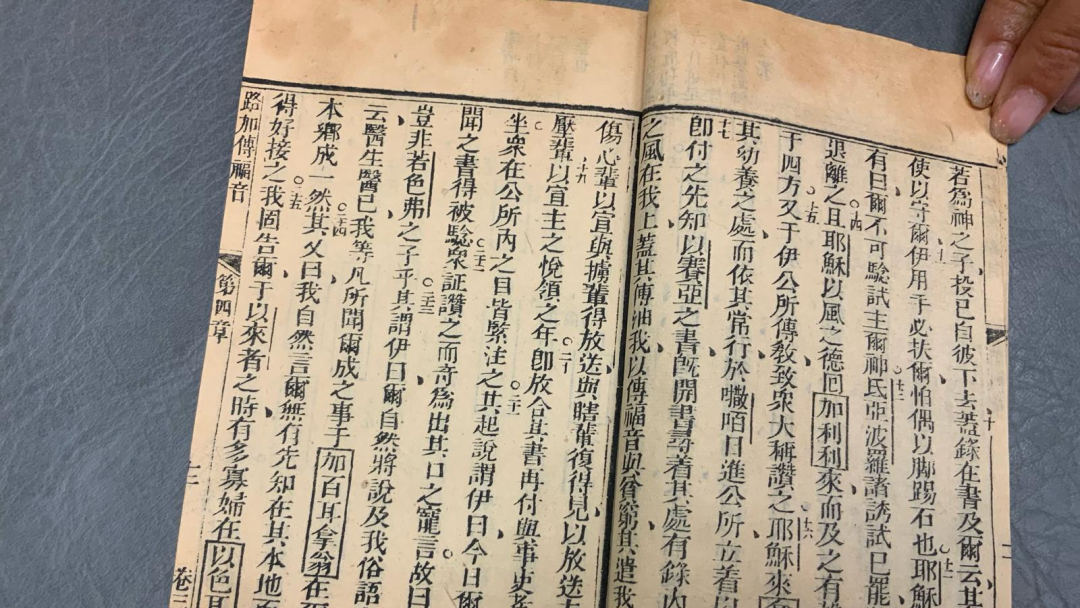 若爲神之子投已自彼下去蓋錄在書及爾云其
使以守爾伊用手必扶爾怕偶以脚踢石也耶穌
有曰爾不可驗試主爾神氏亞波羅諸誘試已罷
退離之且耶穌以風之德回加利利來而及之有
于四方又于伊公所傳敎致衆大稱讚之耶穌來
其幼養之處而依其常行於𡂡咟日進公所立着以
卽付之先知以賽亞之書旣開書尋着其處有錄內
之風在我上蓋其傅油我以傳福音與貧窮其遣我
傷心輩以宣與擄輩得放送與瞎輩復得見以放送
壓輩以宣主之悅領之年卽放合其書再付與事吏
坐衆在公所內之目皆緊注之其起說謂伊曰今日爾
聞之書得被騐衆証讚之而奇爲出其口之寵言故曰
豈非若色弗之子乎其謂伊曰爾自然將說及我俗語
云醫生醫已我等凡所聞爾成之事于加百耳拿翁在
本鄉成一然其又曰我自然言爾無有先知在其本地
得好接之我固告爾于以來者之時有多寡婦在以色耳
路加傳福音
第四章